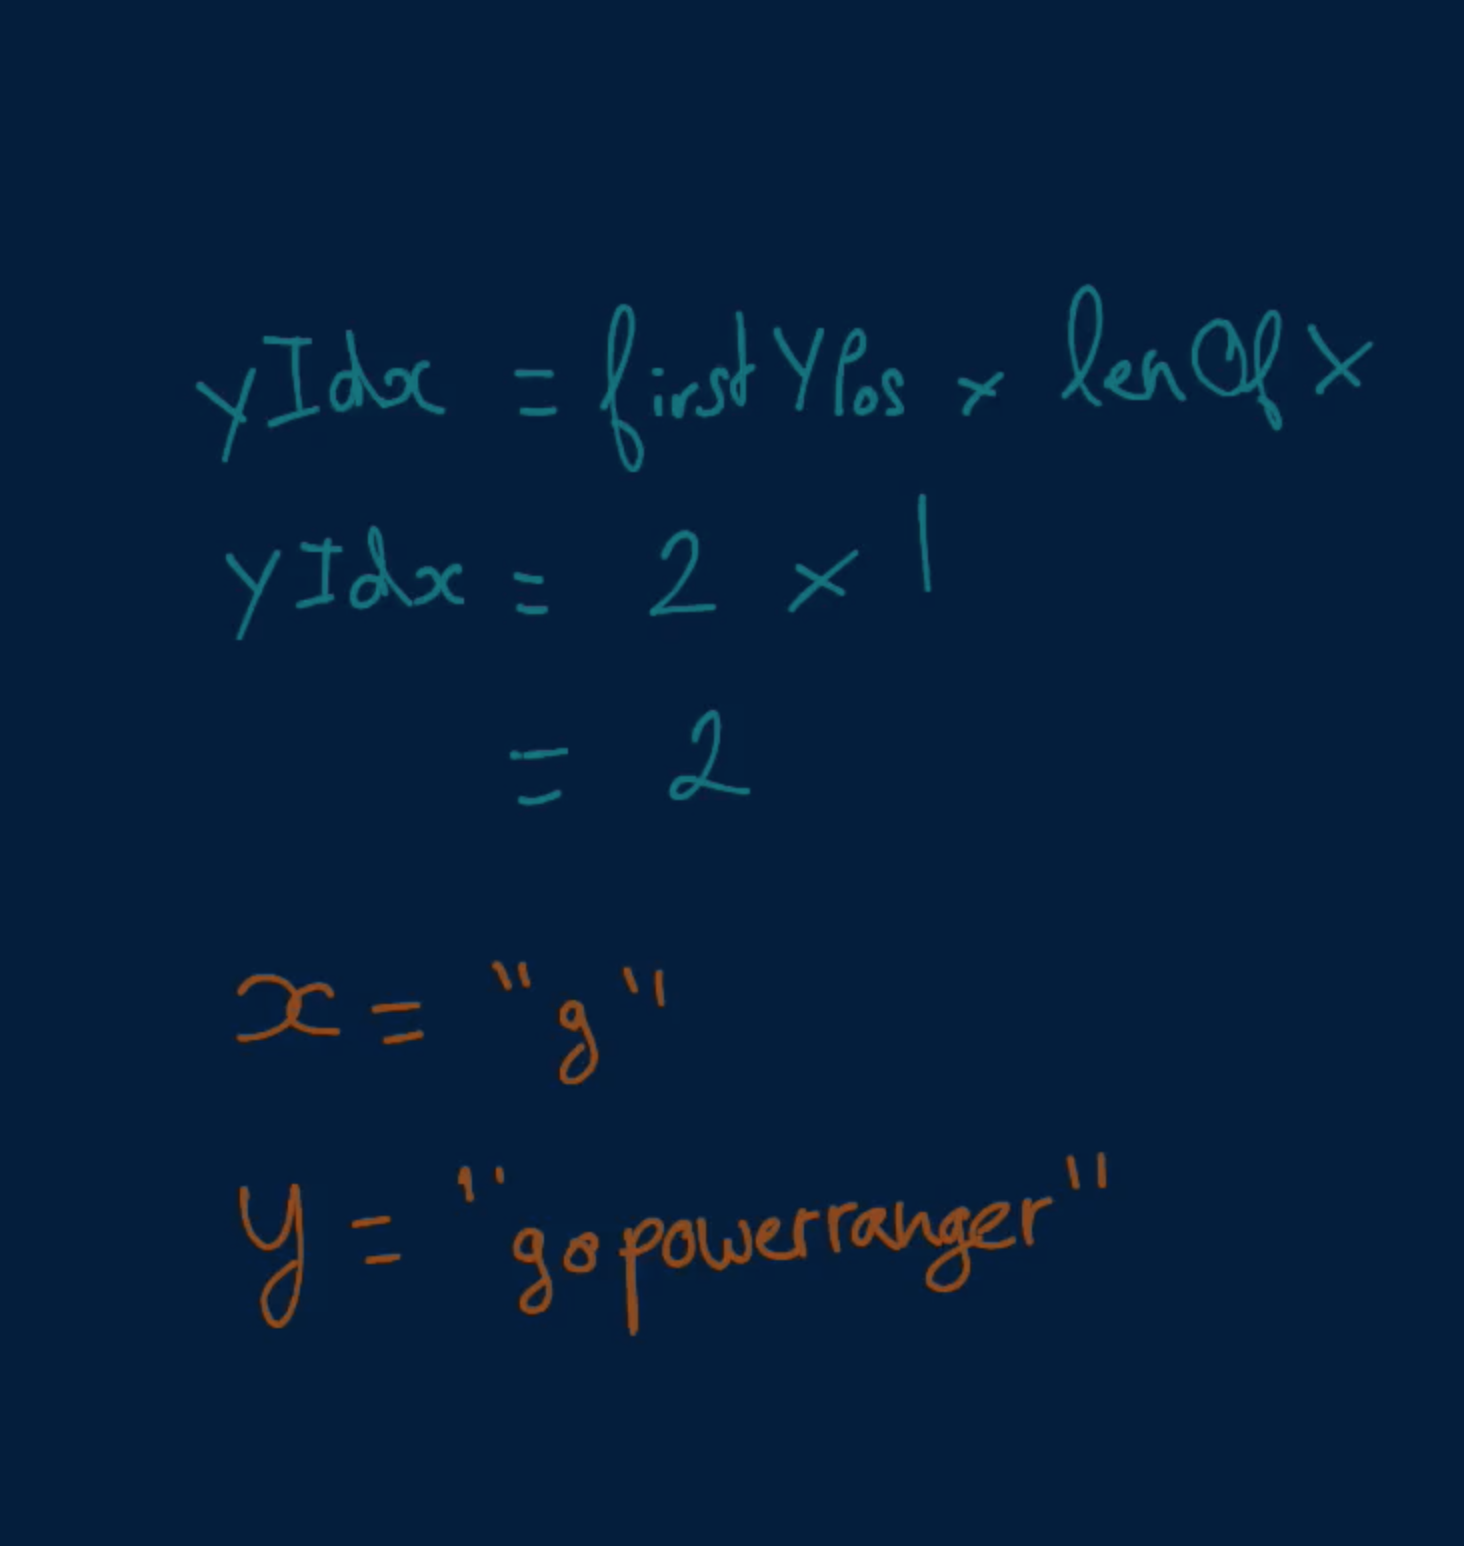 yIdx = firstYPos x lenOfX
yIdx = 2 x 1
= 2
x = "g"
y = "gopowerranger"